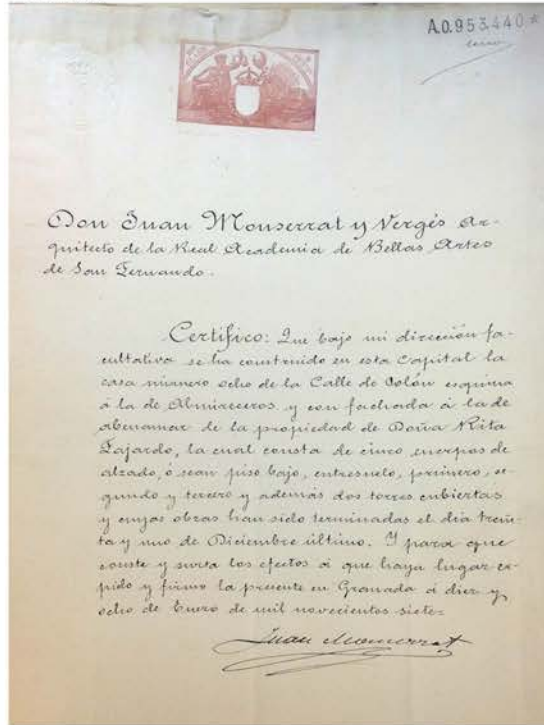 A.0.953.440*
Don Juan Monserrat y Vergés Ar-
quitecto de la Real Academia de Bellas Artes
de San Fernando.
Certifico: Que bajo mi dirección fa-
cultativa se ha construido en esta Capital la
casa número ocho de la Calle de Colón esquina
á la de Almireceros y con fachada á la de
abenamar de la propiedad de Doña Rita
Fajardo, la cual consta de cinco cuerpos de
alzado, ó sean piso bajo, entresuelo, primero, se-
gundo y tercero y además dos torres cubiertas
y cuyas obras han sido terminadas el día trein-
ta y uno de Diciembre último. Y para que
conste y surta los efectos á que haya lugar ex-
pido y firmo la presente en Granada á diez y
ocho de Enero de mil novecientos siete=
Juan Monserrat